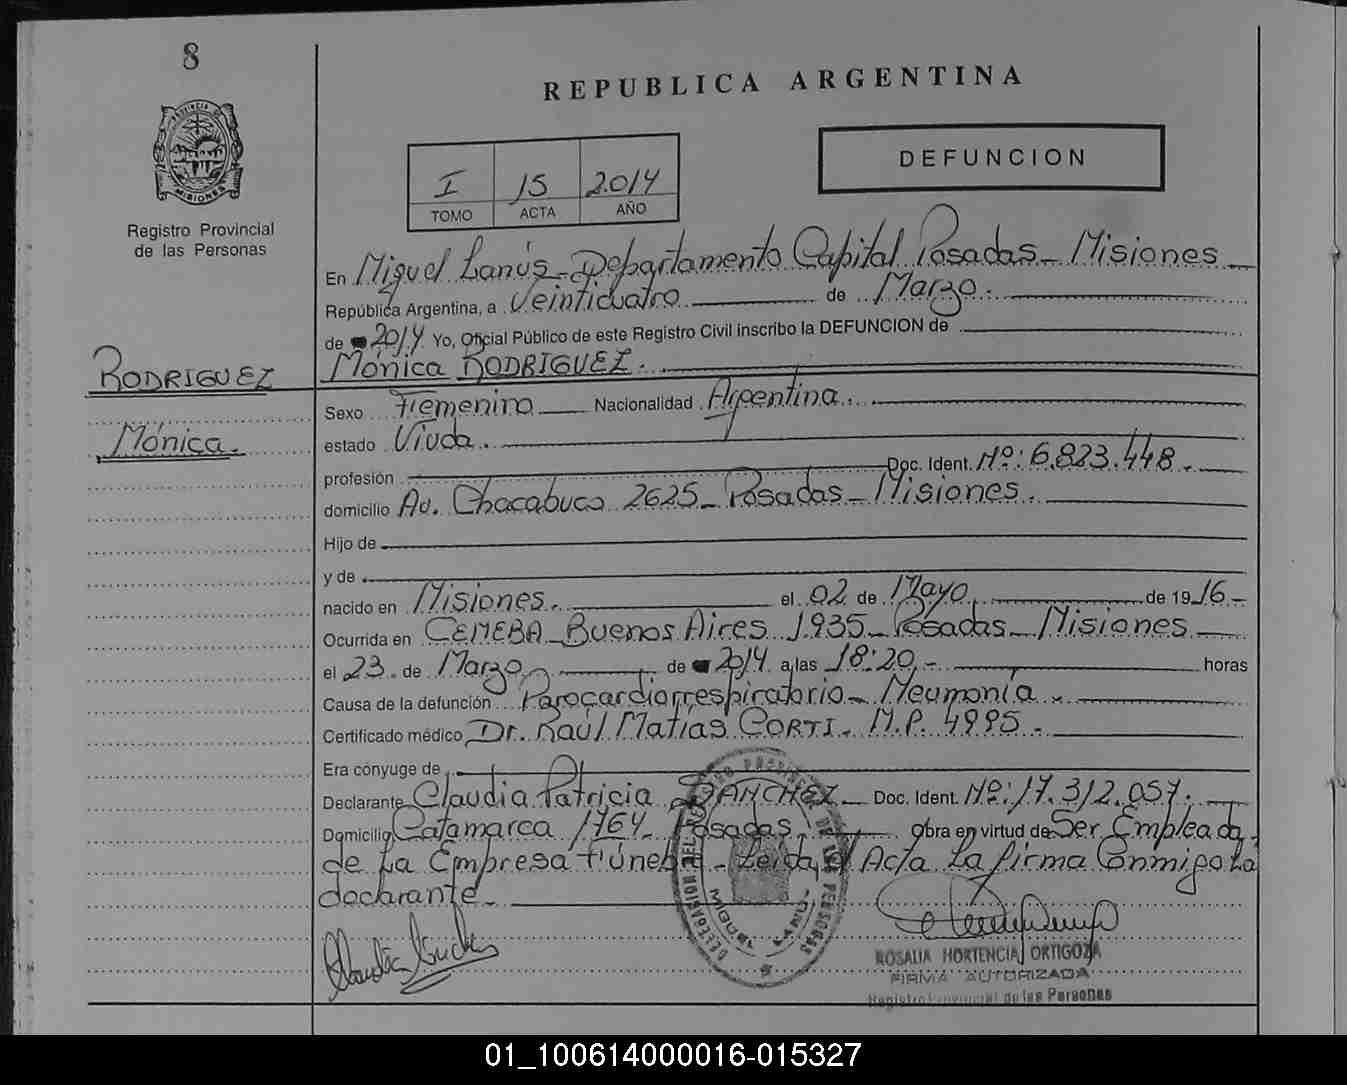 8
REPUBLICA ARGENTINA
PROVINCIA DE
MISIONES
Registro Provincial
de las Personas
I 15 2014
TOMO ACTA AÑO
DEFUNCION
En Miguel Lanús - Departamento Capital Posadas - Misiones -
República Argentina, a Veinticuatro de Marzo.
de 2014 Yo, Oficial Público de este Registro Civil inscribo la DEFUNCION de
RODRIGUEZ
Mónica RODRIGUEZ.
Mónica.
Sexo Femenino Nacionalidad Argentina.
estado Viuda.
profesión Doc. Ident. Nº: 6.823.448.
domicilio Av. Chacabuco 2625 - Posadas - Misiones.
Hijo de
y de
nacido en Misiones. el 02 de Mayo de 1916 -
Ocurrida en CEMEBA - Buenos Aires 1935 - Posadas - Misiones
el 23. de Marzo de 2014 a las 18:20.- horas
Causa de la defunción Parocardiorrespiratorio - Neumonía.
Certificado médico Dr. Raúl Matías CORTI. M.P. 4995 -
Era cónyuge de
Declarante Claudia Patricia SANCHEZ - Doc. Ident. Nº: 17.312.057.
Domicilio Catamarca 1764 - Posadas - obra en virtud de Ser Empleada
de La Empresa Fúnebre - Leída el Acta La firma Conmigo La
declarante.
DELEGACION DEL REGISTRO PROVINCIAL DE LAS PERSONAS
MIGUEL LANUS
ROSALIA HORTENCIA ORTIGOZA
FIRMA AUTORIZADA
Registro Provincial de las Personas
01_100614000016-015327